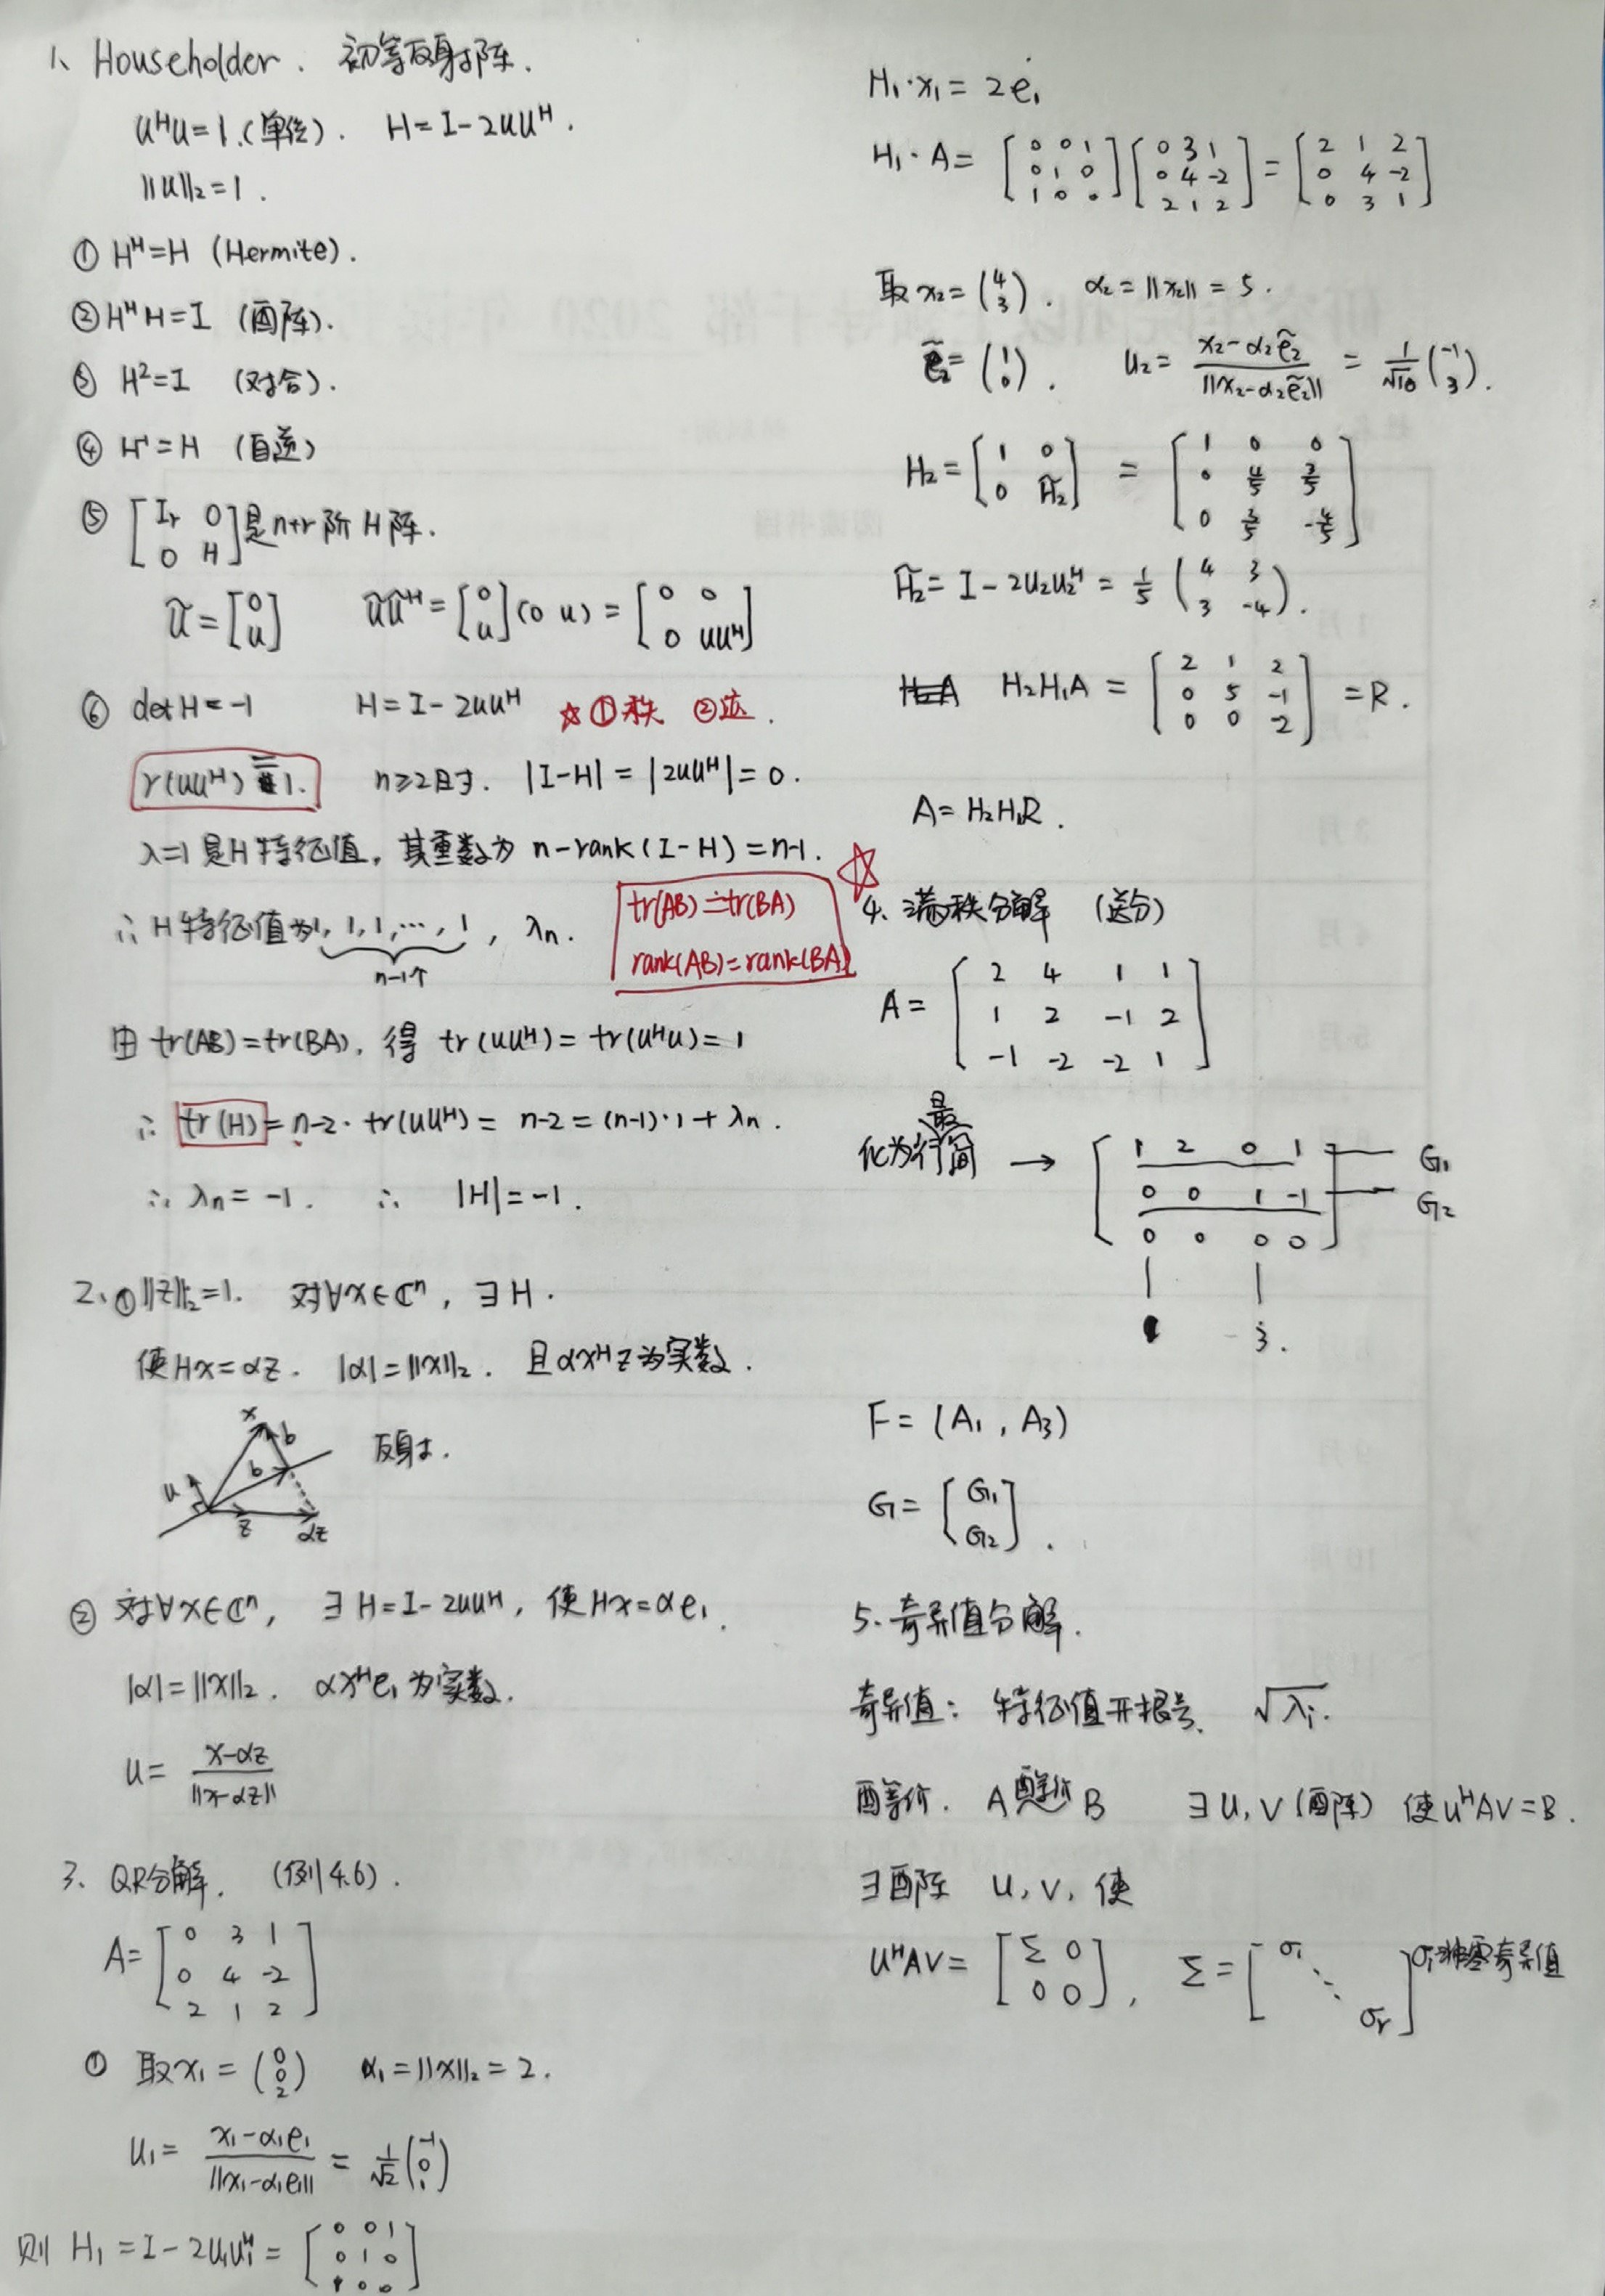 1、Householder. 初等反射阵.
uᴴu=1.(单位). H=I-2uuᴴ.
||u||₂=1.
① Hᴴ=H (Hermite).
② HᴴH=I (酉阵).
③ H²=I (对合).
④ H⁻¹=H (自逆)
⑤ [Iᵣ 0; 0 H]是n+r阶H阵.
ũ=[0; u] ũũᴴ=[0; u](0 u)=[0 0; 0 uuᴴ]
⑥ detH=-1 H=I-2uuᴴ ☆①秩 ②迹.
r(uuᴴ)=1. n≥2时. |I-H|=|2uuᴴ|=0.
λ=1是H特征值, 其重数为 n-rank(I-H)=n-1.
∴H特征值为1,1,1,…,1, λn.
n-1个
tr(AB)=tr(BA)
rank(AB)=rank(BA)
☆
由 tr(AB)=tr(BA), 得 tr(uuᴴ)=tr(uᴴu)=1
∴ tr(H)=n-2·tr(uuᴴ)=n-2=(n-1)·1+λn.
∴ λn=-1. ∴ |H|=-1.
2、①||z||₂=1. 对∀x∈ℂⁿ, ∃H.
使Hx=αz. |α|=||x||₂. 且αxᴴz为实数.
x b b u z αz 反射.
② 对∀x∈ℂⁿ, ∃H=I-2uuᴴ, 使Hx=αe₁.
|α|=||x||₂. αxᴴe₁为实数.
u=(x-αz)/||x-αz||
3、QR分解. (例4.6).
A=[0 3 1; 0 4 -2; 2 1 2]
① 取x₁=(0; 0; 2) α₁=||x||₂=2.
u₁=(x₁-α₁e₁)/||x₁-α₁e₁||=1/√2(-1; 0; 1)
则 H₁=I-2u₁u₁ᴴ=[0 0 1; 0 1 0; 1 0 0]
H₁·x₁=2e₁
H₁·A=[0 0 1; 0 1 0; 1 0 0][0 3 1; 0 4 -2; 2 1 2]=[2 1 2; 0 4 -2; 0 3 1]
取x₂=(4; 3). α₂=||x₂||=5.
ẽ₂=(1; 0). u₂=(x₂-α₂ẽ₂)/||x₂-α₂ẽ₂||=1/√10(-1; 3).
H₂=[1 0; 0 H̃₂]=[1 0 0; 0 4/5 3/5; 0 3/5 -4/5]
H̃₂=I-2u₂u₂ᴴ=1/5(4 3; 3 -4).
H₂H₁A=[2 1 2; 0 5 -1; 0 0 -2]=R.
A=H₂H₁R.
4、满秩分解 (送分)
A=[2 4 1 1; 1 2 -1 2; -1 -2 -2 1]
化为行最简 → [1 2 0 1; 0 0 1 -1; 0 0 0 0]
G₁
G₂
3.
F=(A₁, A₃)
G=[G₁; G₂].
5、奇异值分解.
奇异值: 特征值开根号. √λi.
酉等价. A 酉等价 B ∃U,V(酉阵) 使UᴴAV=B.
∃酉阵 U,V, 使
UᴴAV=[Σ 0; 0 0], Σ=[σ₁ ⋱ σr] σi非零奇异值